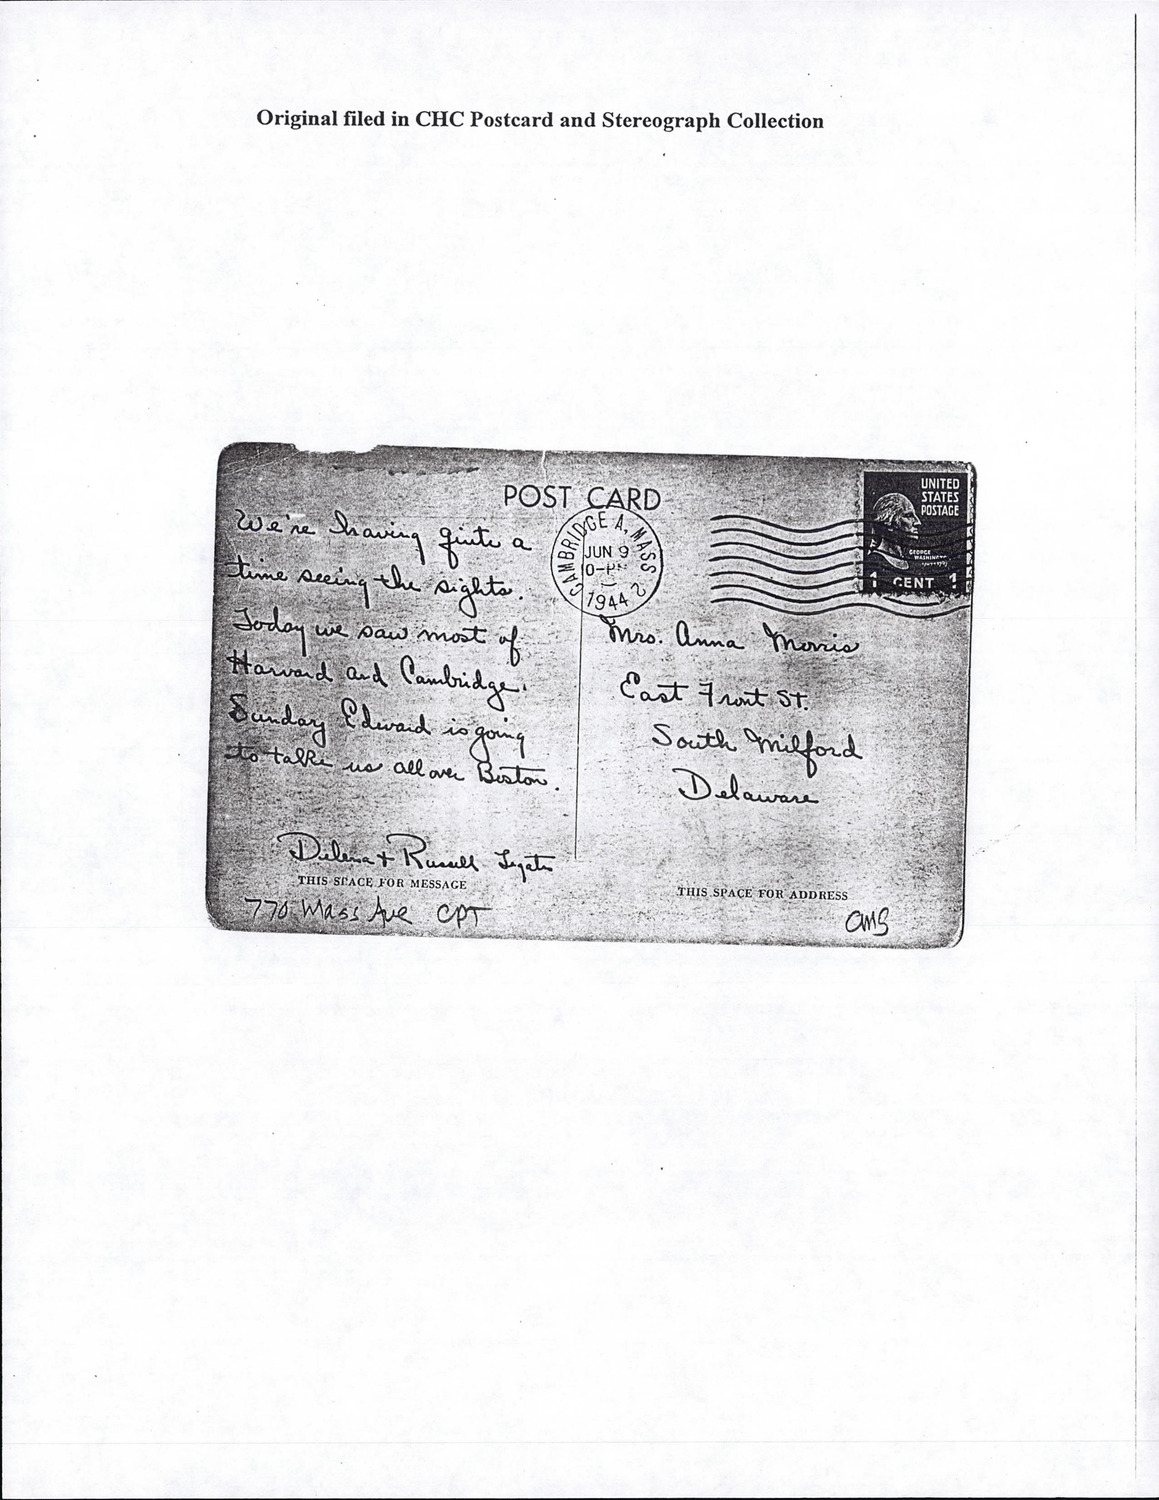 Original filed in CHC Postcard and Stereograph Collection
POST CARD
UNITED
STATES
POSTAGE
GEORGE
1 CENT 1
CAMBRIDGE A, MASS
JUN 9
1944
2
We're having quite a
time seeing the sights.
Today we saw most of
Harvard and Cambridge.
Sunday Edward is going
to take us all over Boston.
Delema + Russell Legates
THIS SPACE FOR MESSAGE
770 Mass Ave CPT
Mrs. Anna Morris
East Front St.
South Milford
Delaware
THIS SPACE FOR ADDRESS
CMS